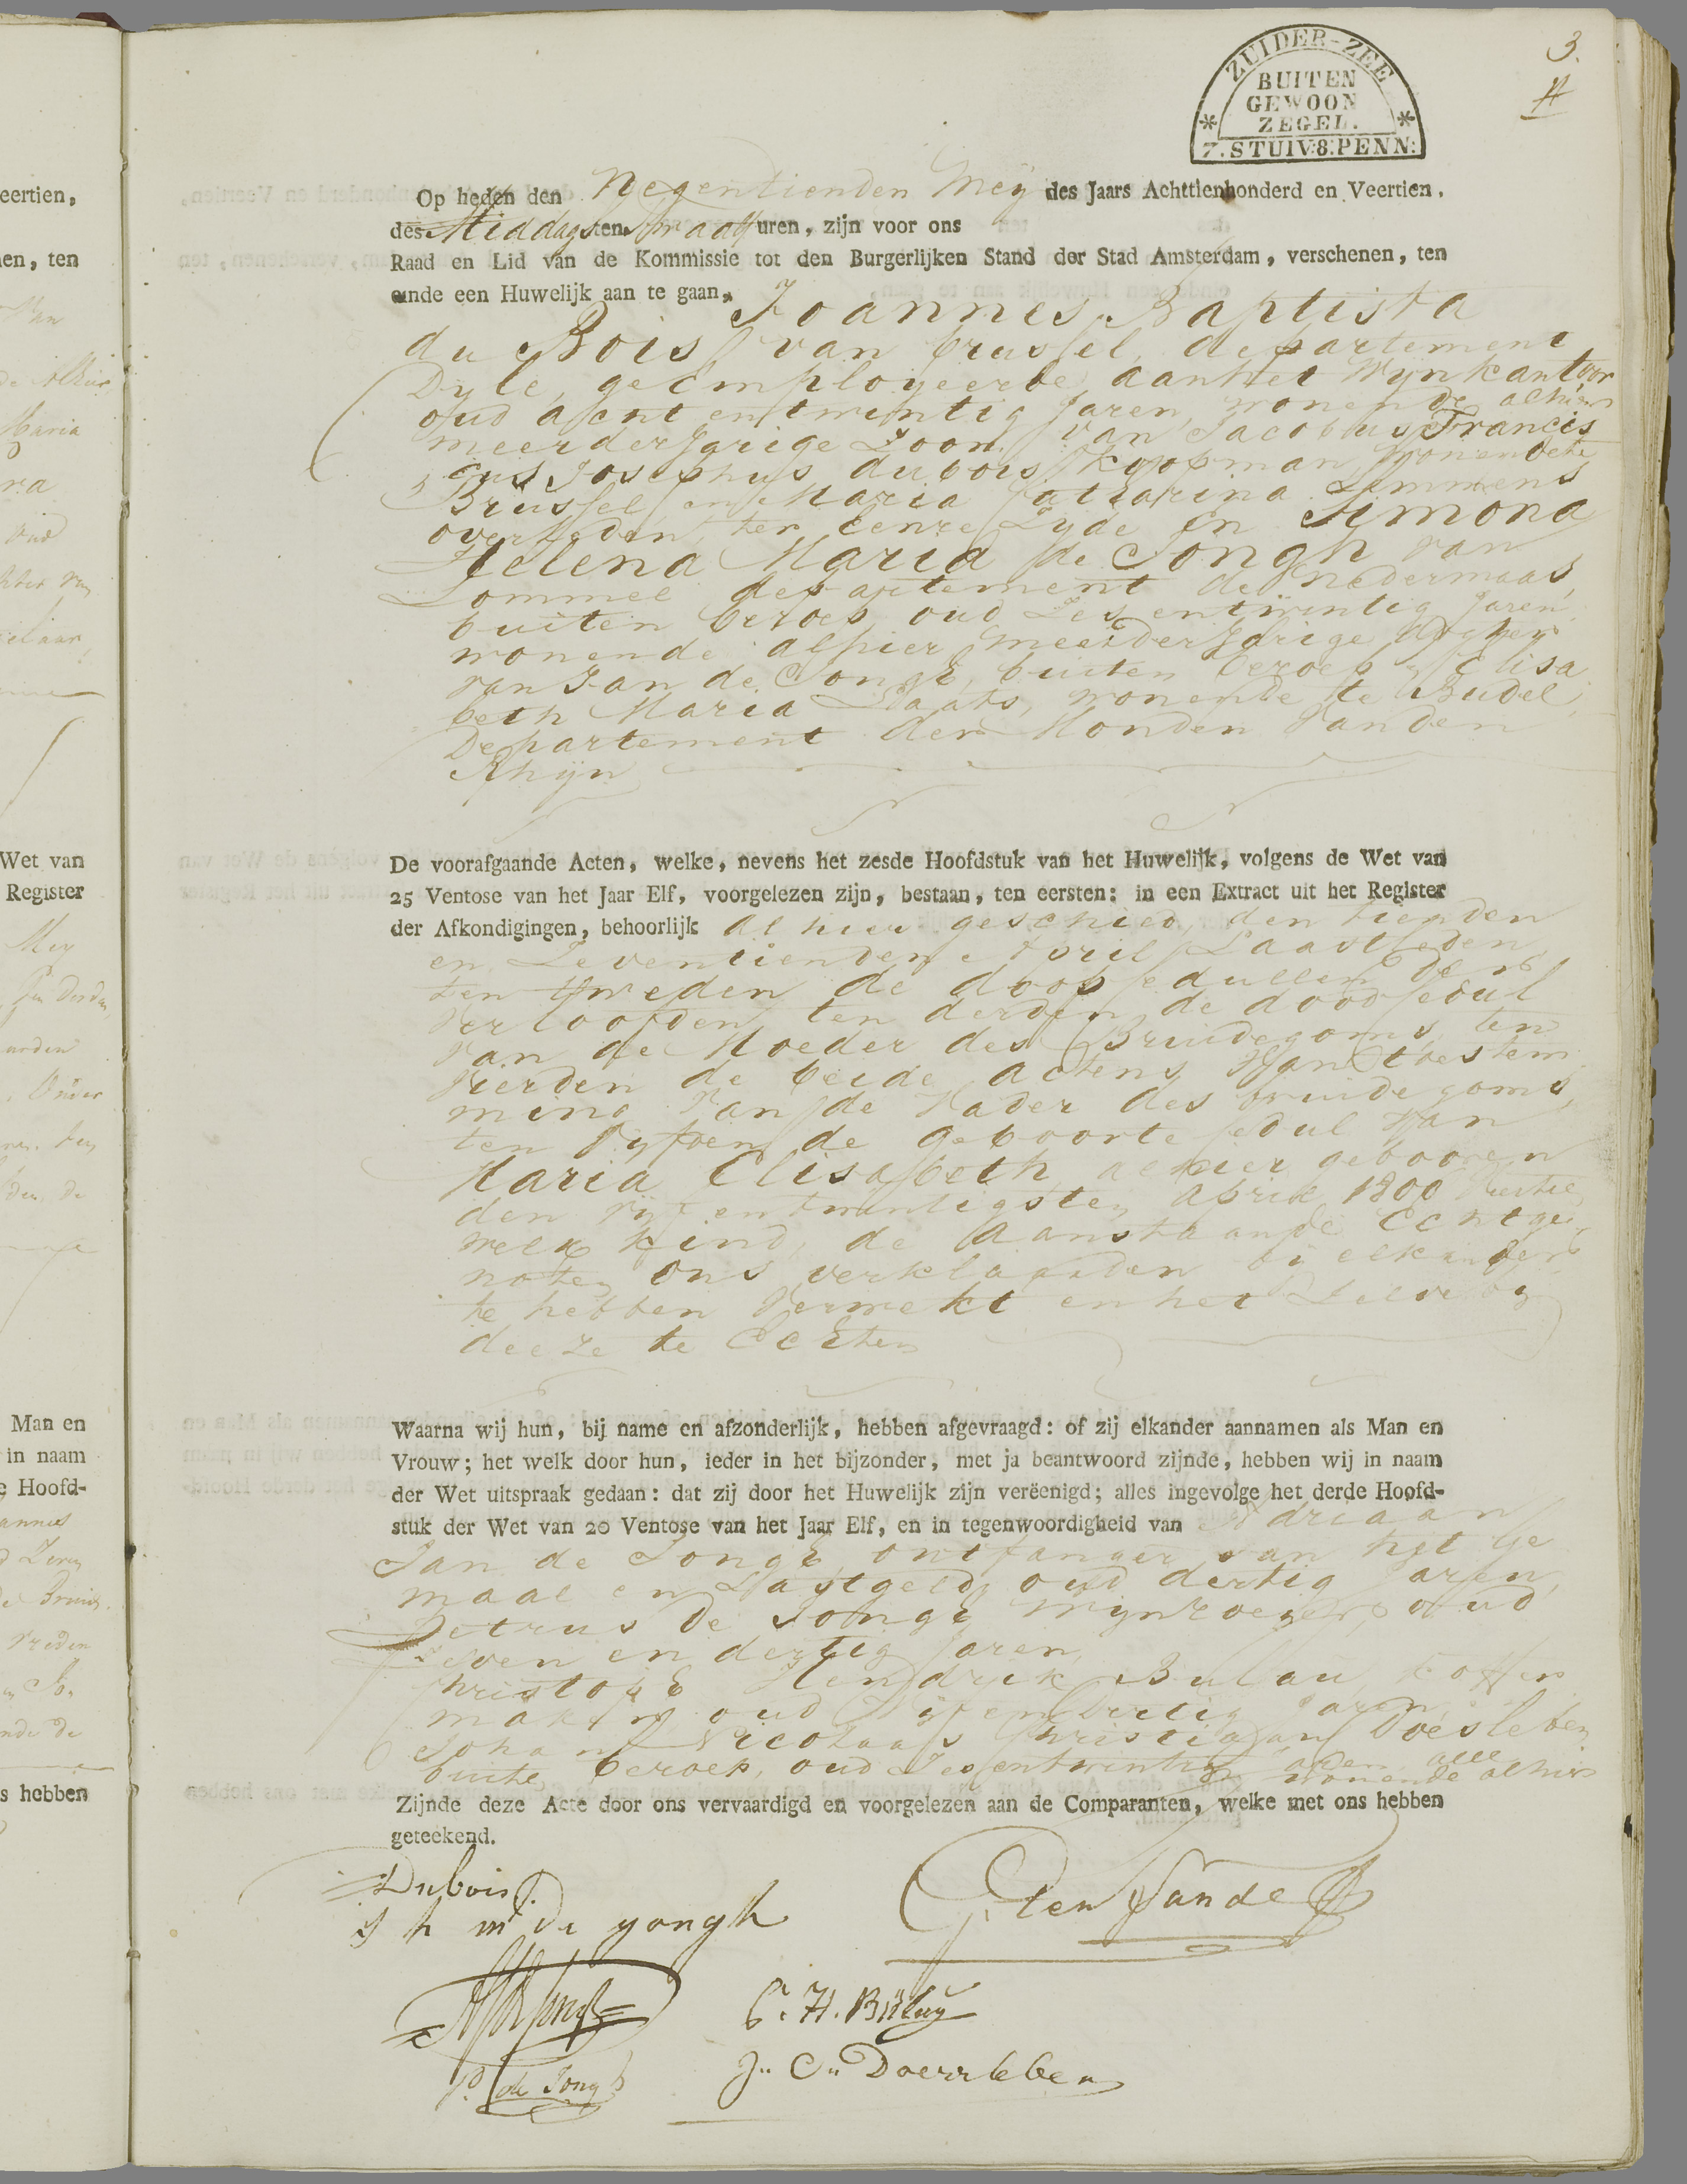 3.
ZUIDER-ZEE
BUITEN
GEWOON
ZEGEL.
7.STUIV:8.PENN:
Op heden den Negentienden Meij des Jaars Achttienhonderd en Veertien.
des Middags ten twaalf uren, zijn voor ons
Raad en Lid van de Kommissie tot den Burgerlijken Stand der Stad Amsterdam, verschenen, ten
einde een Huwelijk aan te gaan, Joannes Baptista
du Bois, van brussel, departement
Dyle, geëmployeerde aan het Wijnkantoor
oud acht en twintig Jaren, wonende alhier
meerderjarige Zoon van Jacobus Francis
cus Josephus dubois, koopman, wonende te
Brussel, en Maria Catharina Lemmens
overleden, ter eenre Zyde en Simona
Helena Maria de Jongh van
Lommel departement de Nedermaas,
buiten beroep, oud Zes entwintig Jaren
wonende alhier, meerderjarige dogter
van Jan de Jongh, buiten beroep, en Elisa
beth Maria Staats, wonende te Budel,
Departement der Monden van den
Rhijn
De voorafgaande Acten, welke, nevens het zesde Hoofdstuk van het Huwelijk, volgens de Wet van
25 Ventose van het Jaar Elf, voorgelezen zijn, bestaan, ten eersten: in een Extract uit het Register
der Afkondigingen, behoorlijk al hier geschied, den tienden
en Zeventienden April Laastleden
ten tweeden de doop cedullen der
verloofden, ten derden de dood cedul
van de Moeder des Bruidegoms, ten
vierden de beide actens van toestem
ming van de Vader des bruidegoms,
ten vyfden de geboorte cedul van
Maria Elisabeth, alhier gebooren
den vyf entwintigsten April 1800 Veertie
welk kind, de aanstaande Echtge
noten ons verklaarden bij elkander
te hebben verwekt en het Zelve by
deeze te Echten
Waarna wij hun, bij name en afzonderlijk, hebben afgevraagd: of zij elkander aannamen als Man en
Vrouw; het welk door hun, ieder in het bijzonder, met ja beantwoord zijnde, hebben wij in naam
der Wet uitspraak gedaan: dat zij door het Huwelijk zijn verëenigd; alles ingevolge het derde Hoofd-
stuk der Wet van 20 Ventose van het Jaar Elf, en in tegenwoordigheid van Adriaan
Jan de Jongh, ontfanger van het Ge
maal en Slastgeld, oud dertig Jaren,
Petrus de Jongh, Wijnroeyer, oud
Zeven en dertig Jaren,
Christoph Hendrik Bulau, koffer
maker, oud vyf en dertig Jaren,
Johan Nicolaas Christiaan Doesleben
buite beroep, oud Zes entwintig Jaren, alle
wonende alhier
Zijnde deze Acte door ons vervaardigd en voorgelezen aan de Comparanten, welke met ons hebben
geteekend.
Dubois
S h m de yongh
G. ten Sande
C. H. Bülau
P. de Jongh
J. C. Doerrleben
eertien,
en, ten
Maria
Wet van
Register
Mey
Man en
in naam
Hoofd-
s hebben